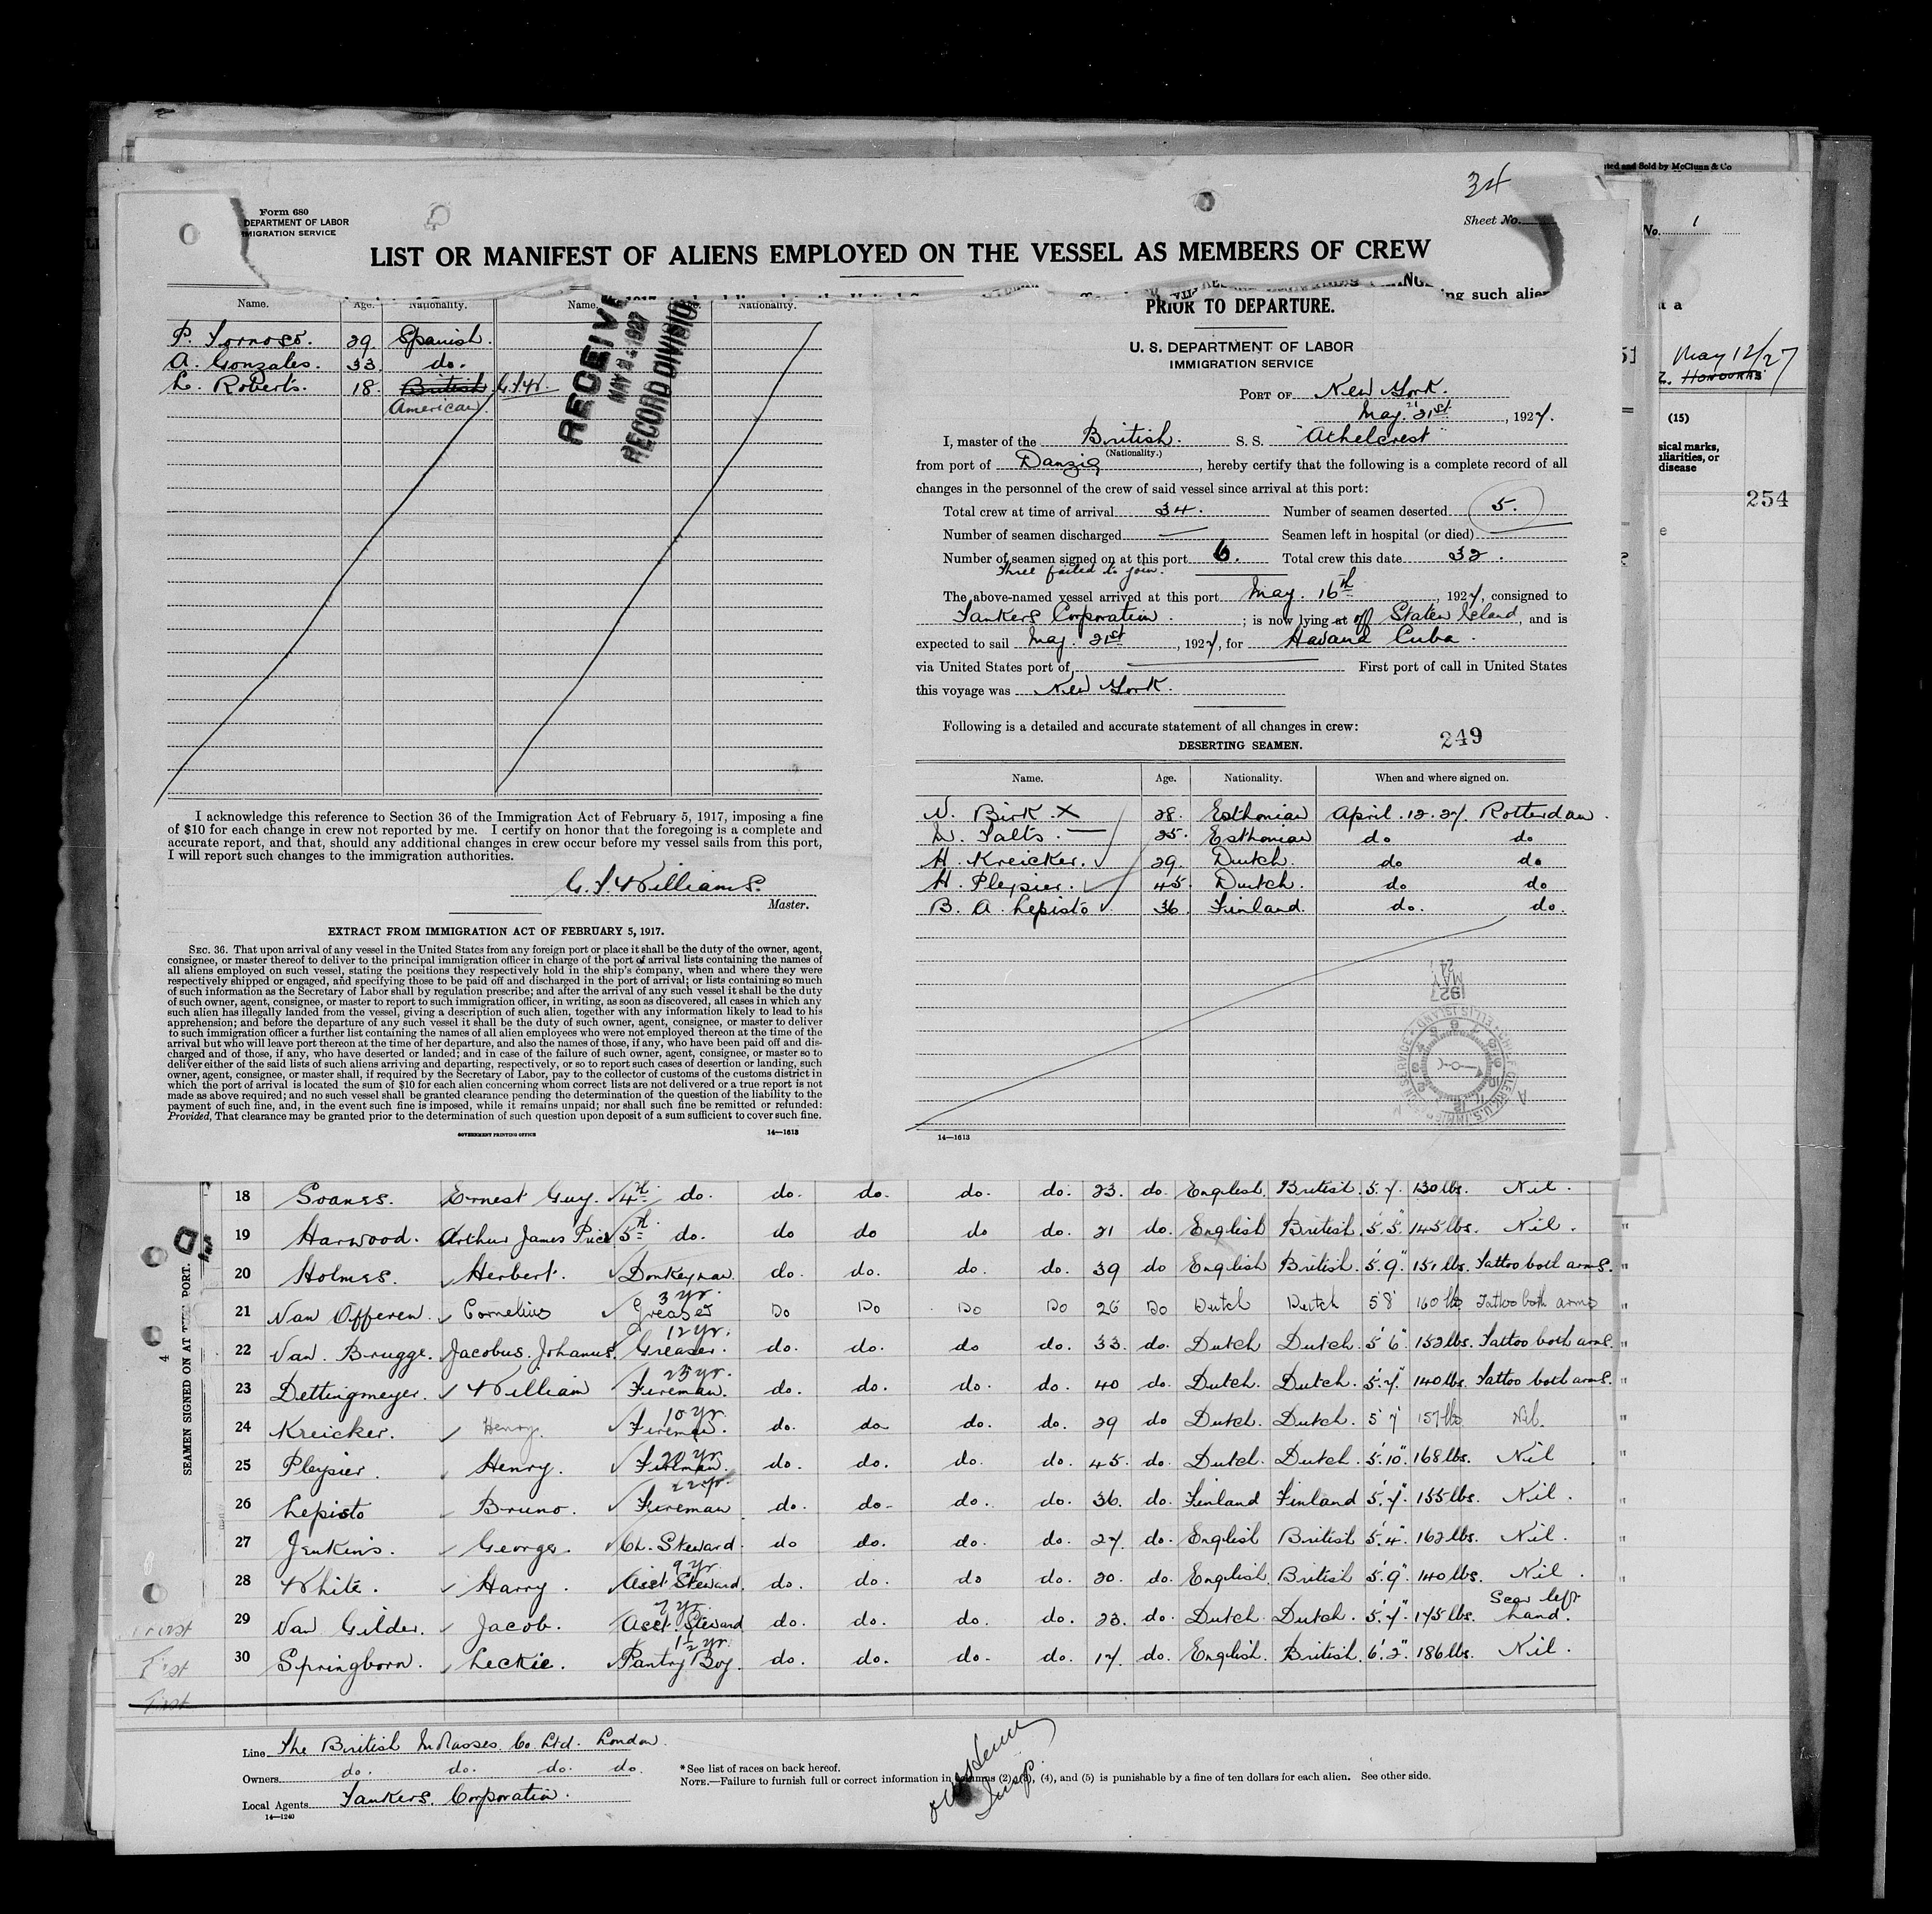 34
Form 680
DEPARTMENT OF LABOR
MIGRATION SERVICE
Sheet No.
LIST OR MANIFEST OF ALIENS EMPLOYED ON THE VESSEL AS MEMBERS OF CREW
Name. Age. Nationality. Name. Nationality.
P. Tornoso. 29. Spanish.
A. Gonzales. 33. do.
L. Roberts. 18. British G.T.W.
American.
RECEIVE
MAY 24 1927
RECORD DIVISION
I acknowledge this reference to Section 36 of the Immigration Act of February 5, 1917, imposing a fine
of $10 for each change in crew not reported by me. I certify on honor that the foregoing is a complete and
accurate report, and that, should any additional changes in crew occur before my vessel sails from this port,
I will report such changes to the immigration authorities.
G. T. Williams.
Master.
EXTRACT FROM IMMIGRATION ACT OF FEBRUARY 5, 1917.
SEC. 36. That upon arrival of any vessel in the United States from any foreign port or place it shall be the duty of the owner, agent,
consignee, or master thereof to deliver to the principal immigration officer in charge of the port of arrival lists containing the names of
all aliens employed on such vessel, stating the positions they respectively hold in the ship's company, when and where they were
respectively shipped or engaged, and specifying those to be paid off and discharged in the port of arrival; or lists containing so much
of such information as the Secretary of Labor shall by regulation prescribe; and after the arrival of any such vessel it shall be the duty
of such owner, agent, consignee, or master to report to such immigration officer, in writing, as soon as discovered, all cases in which any
such alien has illegally landed from the vessel, giving a description of such alien, together with any information likely to lead to his
apprehension; and before the departure of any such vessel it shall be the duty of such owner, agent, consignee, or master to deliver
to such immigration officer a further list containing the names of all alien employees who were not employed thereon at the time of the
arrival but who will leave port thereon at the time of her departure, and also the names of those, if any, who have been paid off and dis-
charged and of those, if any, who have deserted or landed; and in case of the failure of such owner, agent, consignee, or master so to
deliver either of the said lists of such aliens arriving and departing, respectively, or so to report such cases of desertion or landing, such
owner, agent, consignee, or master shall, if required by the Secretary of Labor, pay to the collector of customs of the customs district in
which the port of arrival is located the sum of $10 for each alien concerning whom correct lists are not delivered or a true report is not
made as above required; and no such vessel shall be granted clearance pending the determination of the question of the liability to the
payment of such fine, and, in the event such fine is imposed, while it remains unpaid; nor shall such fine be remitted or refunded:
Provided, That clearance may be granted prior to the determination of such question upon deposit of a sum sufficient to cover such fine.
GOVERNMENT PRINTING OFFICE 14—1613
ing such alien
PRIOR TO DEPARTURE.
U. S. DEPARTMENT OF LABOR
IMMIGRATION SERVICE
PORT OF New York.
May. 21st, 1927.
I, master of the British. S. S. "Athelcrest"
(Nationality.)
from port of Danzig, hereby certify that the following is a complete record of all
changes in the personnel of the crew of said vessel since arrival at this port:
Total crew at time of arrival 34. Number of seamen deserted 5.
Number of seamen discharged — Seamen left in hospital (or died)
Number of seamen signed on at this port 6. Total crew this date 32.
Three failed to join.
The above-named vessel arrived at this port May. 16th, 1927, consigned to
Tankers Corporation.; is now lying at off Staten Island, and is
expected to sail May. 21st, 1927, for Havana Cuba.
via United States port of — First port of call in United States
this voyage was New York.
Following is a detailed and accurate statement of all changes in crew:
DESERTING SEAMEN. 249
Name. Age. Nationality. When and where signed on.
N. Birk. X 28. Esthonian April. 12. 27. Rotterdam.
D. Talts. — 25. Esthonian do do
H. Kreicker. ✓ 29. Dutch. do do
H. Pleysier. ✓ 45. Dutch. do do
B. A. Lepisto ✓ 36. Finland. do. do.
1927
MAY
24
14—1613
ted and Sold by McClunn & Co
No. 1
May 12/27
HONDURAS
(15)
sical marks,
uliarities, or
disease
254
SEAMEN SIGNED ON AT THIS PORT. 4
18 Soanes. Ernest Guy. ✓ 4th. do. do. do. do. do. 23. do. English. British. 5'.7". 130 lbs. Nil.
19 Harwood. Arthur James Price ✓ 5th. do. do do do do. 21 do. English British. 5'.5". 145 lbs. Nil.
20 Holmes. ✓ Herbert. ✓ Donkeyman. do. do. do. do. 39 do English British. 5'.9". 151 lbs. Tattoo both arms.
3 yr.
21 Van Offeren. ✓ Cornelius ✓ Greaser Do Do Do Do 26 Do Dutch Dutch 5'8" 160 lbs Tattoo both arms
12 yr.
22 Van. Brugge. Jacobus. Johannes. Greaser. do. do. do do. 33. do. Dutch Dutch. 5'6". 152 lbs. Tattoo both arms.
25 yr.
23 Dettingmeyer. ✓ William Fireman. do. do. do. do. 40 do. Dutch. Dutch. 5'.7". 140 lbs. Tattoo both arms.
10 yr.
24 Kreicker. ✓ Henry. ✓ Fireman. do. do do. do. 29 do Dutch. Dutch. 5'7" 157 lbs Nil.
20 yr
25 Pleysier. ✓ Henry. ✓ Fireman. do. do. do. do. 45. do. Dutch. Dutch. 5'.10". 168 lbs. Nil
22 yr.
26 Lepisto ✓ Bruno. ✓ Fireman do. do. do. do. 36. do. Finland Finland 5'.7". 155 lbs. Nil.
27 Jenkins. ✓ George. ✓ Ch. Steward. do do. do. do. 27. do. English British 5'.4". 162 lbs. Nil.
9 yr.
28 White. ✓ Harry. ✓ Asst. Steward. do. do. do do. 20. do. English. British. 5'.9". 140 lbs. Nil.
7 yr.
29 Van Gilder. ✓ Jacob. Asst. Steward do. do. do. do. 23. do. Dutch Dutch. 5'.7". 175 lbs. Scar left hand.
1½ yr.
30 Springborn. ✓ Leckie. ✓ Pantry Boy. do. do. do. do. 17. do. English. British. 6'.2". 186 lbs. Nil.
First
First
First
Line The British Molasses. Co. Ltd. London.
Owners do. do. do. do.
Local Agents Tankers. Corporation.
14—1240
* See list of races on back hereof.
NOTE.—Failure to furnish full or correct information in columns (2), (3), (4), and (5) is punishable by a fine of ten dollars for each alien. See other side.
Insp.